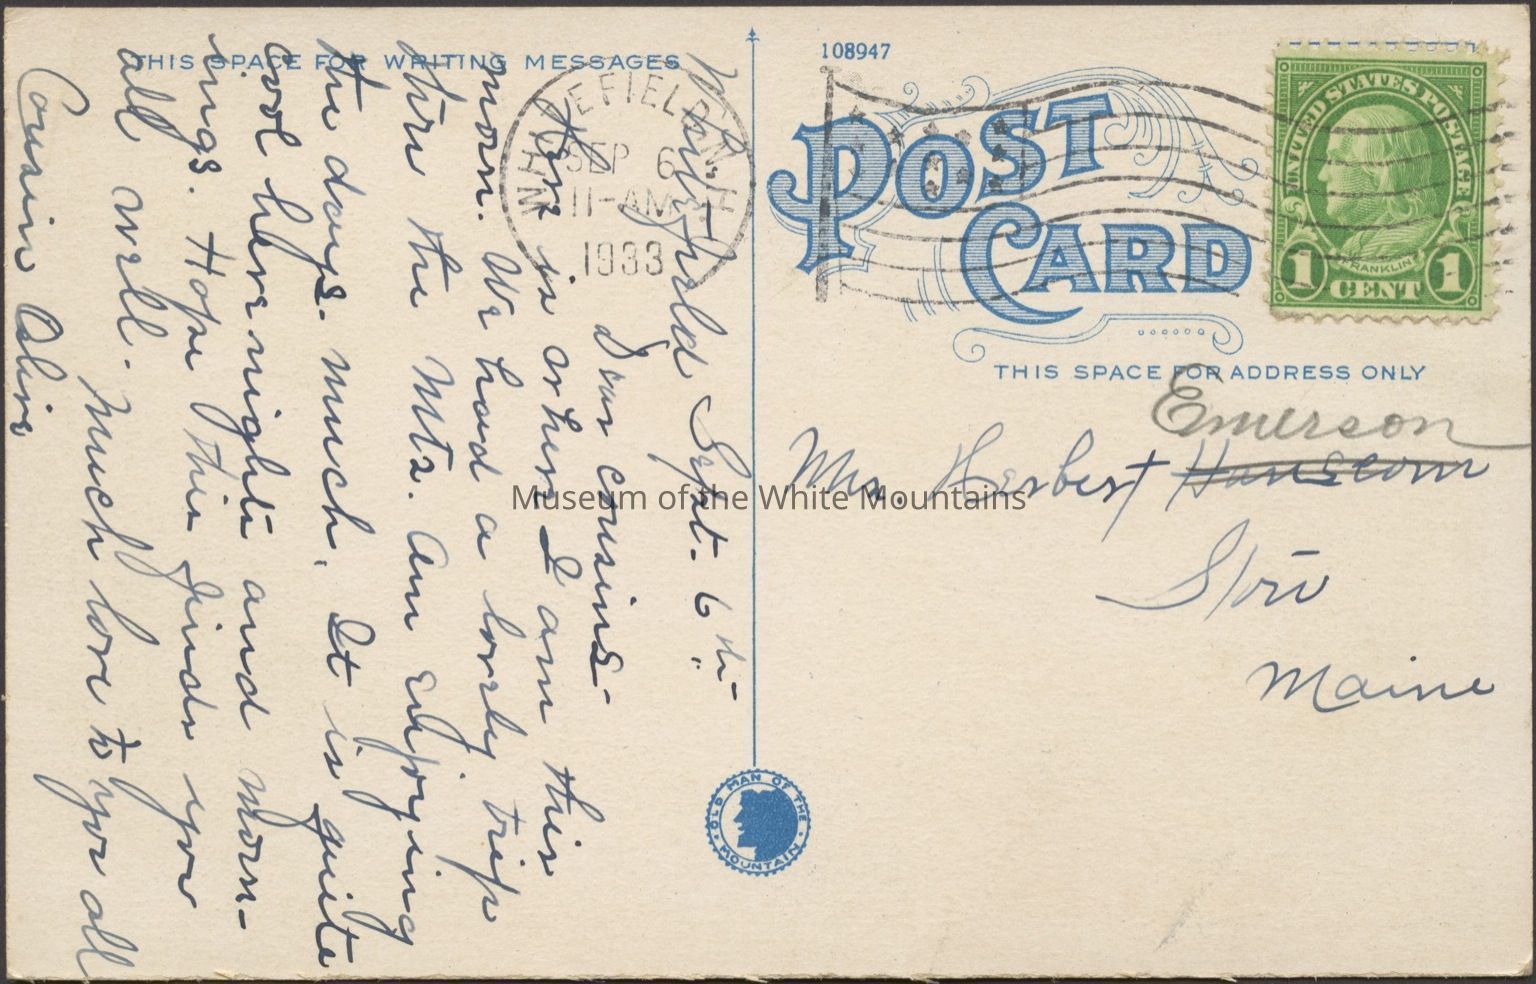 THIS SPACE FOR WRITING MESSAGES
Whitefield Sept. 6th.
Dear Cousins-
Here is where I am this
morn. We had a lovely trip
thru the Mts. Am enjoying
the days. much. It is quite
cool here nights and morn-
ings. Hope this finds you
all well. Much love to you all
Cousin Alice
WHITEFIELD N.H.
SEP 6
11-AM
1933
108947
POST
CARD
UNITED STATES POSTAGE
FRANKLIN
1 CENT 1
THIS SPACE FOR ADDRESS ONLY
Emerson
Mrs. Herbert Hanscom
Maine
OLD MAN OF THE MOUNTAIN
Museum of the White Mountains